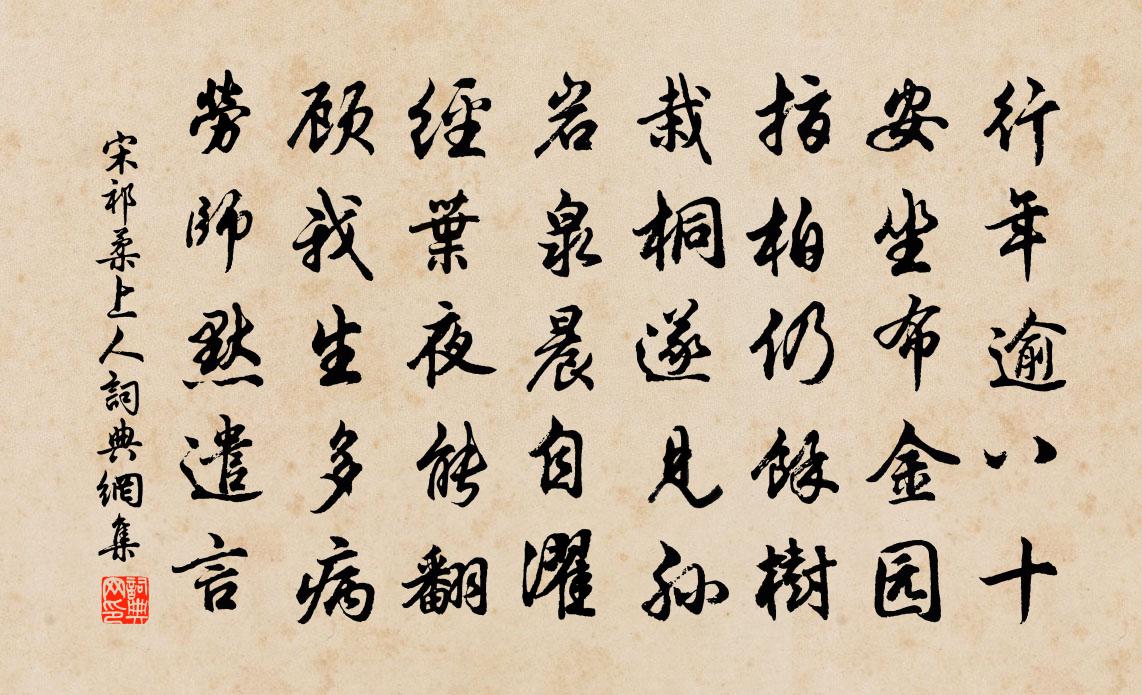 行年逾八十
安坐布金园
指柏仍餘樹
栽桐遂见孙
岩泉晨自濯
經葉夜能翻
顾我生多病
勞師默遣言
宋祁柔上人詞典網集
詞典网印